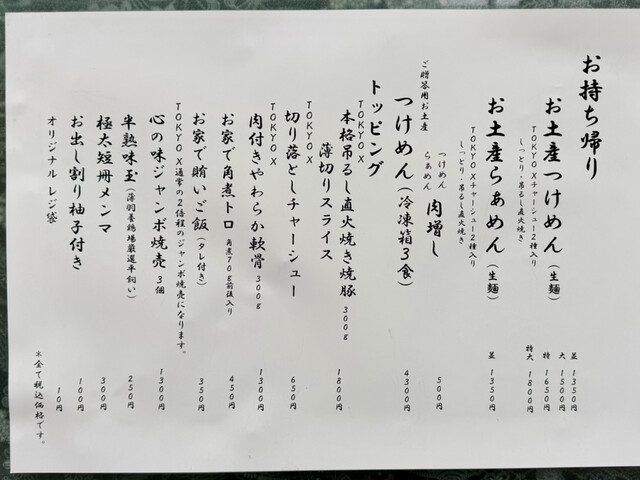 お持ち帰り
お土産つけめん（生麺）
並 1350円
大 1500円
特 1650円
特大 1800円
TOKYO Xチャーシュー2種入り
しっとり・吊るし直火焼き
お土産らぁめん（生麺） 並 1350円
TOKYO Xチャーシュー2種入り
しっとり・吊るし直火焼き
つけめん
らぁめん
肉増し 500円
ご贈答用お土産
つけめん（冷凍箱3食） 4300円
トッピング
TOKYO X
本格吊るし直火焼き焼豚 300g 1800円
薄切りスライス
TOKYO X
切り落としチャーシュー 650円
TOKYO X
肉付きやわらか軟骨 300g 1300円
お家で角煮トロ 角煮70g前後入り 450円
お家で賄いご飯（タレ付き） 350円
TOKYO X通常の2倍程のジャンボ焼売になります。
心の味ジャンボ焼売 3個 1300円
半熟味玉（薄羽養鶏場厳選平飼い） 250円
極太短冊メンマ 300円
お出し割り柚子付き 100円
オリジナルレジ袋 10円
※全て税込価格です。